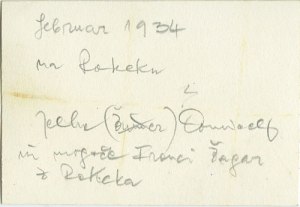 februar 1934
na Rakeku
Jelka (Žumer)
in mogoče Franci Žagar
z Rakeka